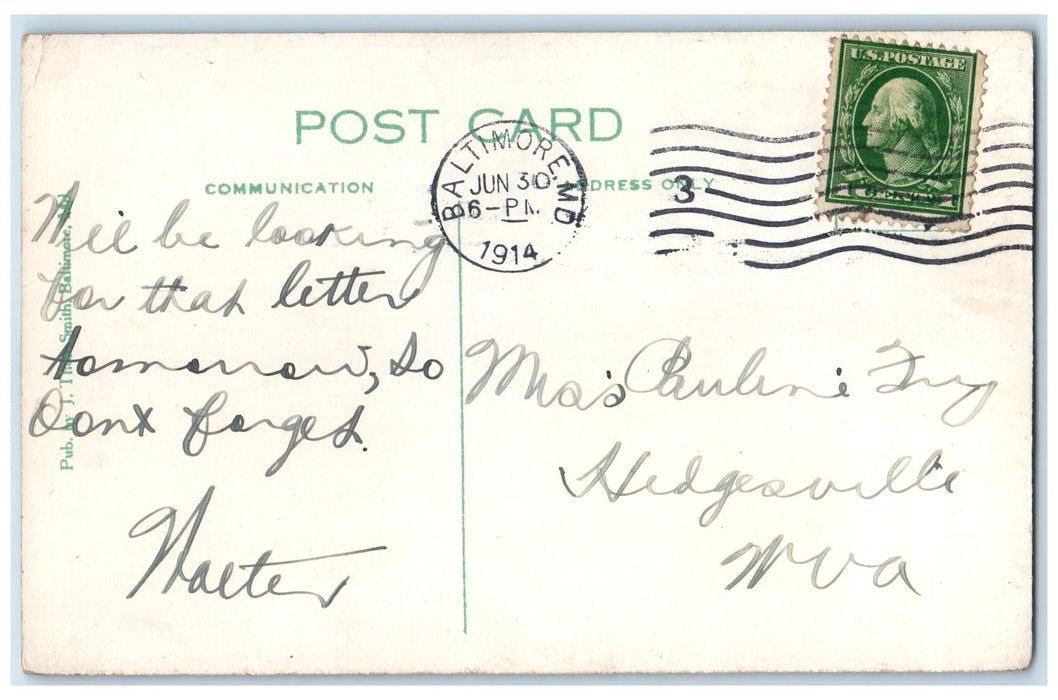 POST CARD
COMMUNICATION
ADDRESS ONLY
BALTIMORE, MD
JUN 30
6-PM
1914
3
U.S. POSTAGE
Will be looking
for that letter
tomorrow, so
Dont forget.
Walter
Miss Pauline Fry
Hedgesville
W Va
Pub. by J. Smith, Baltimore, Md